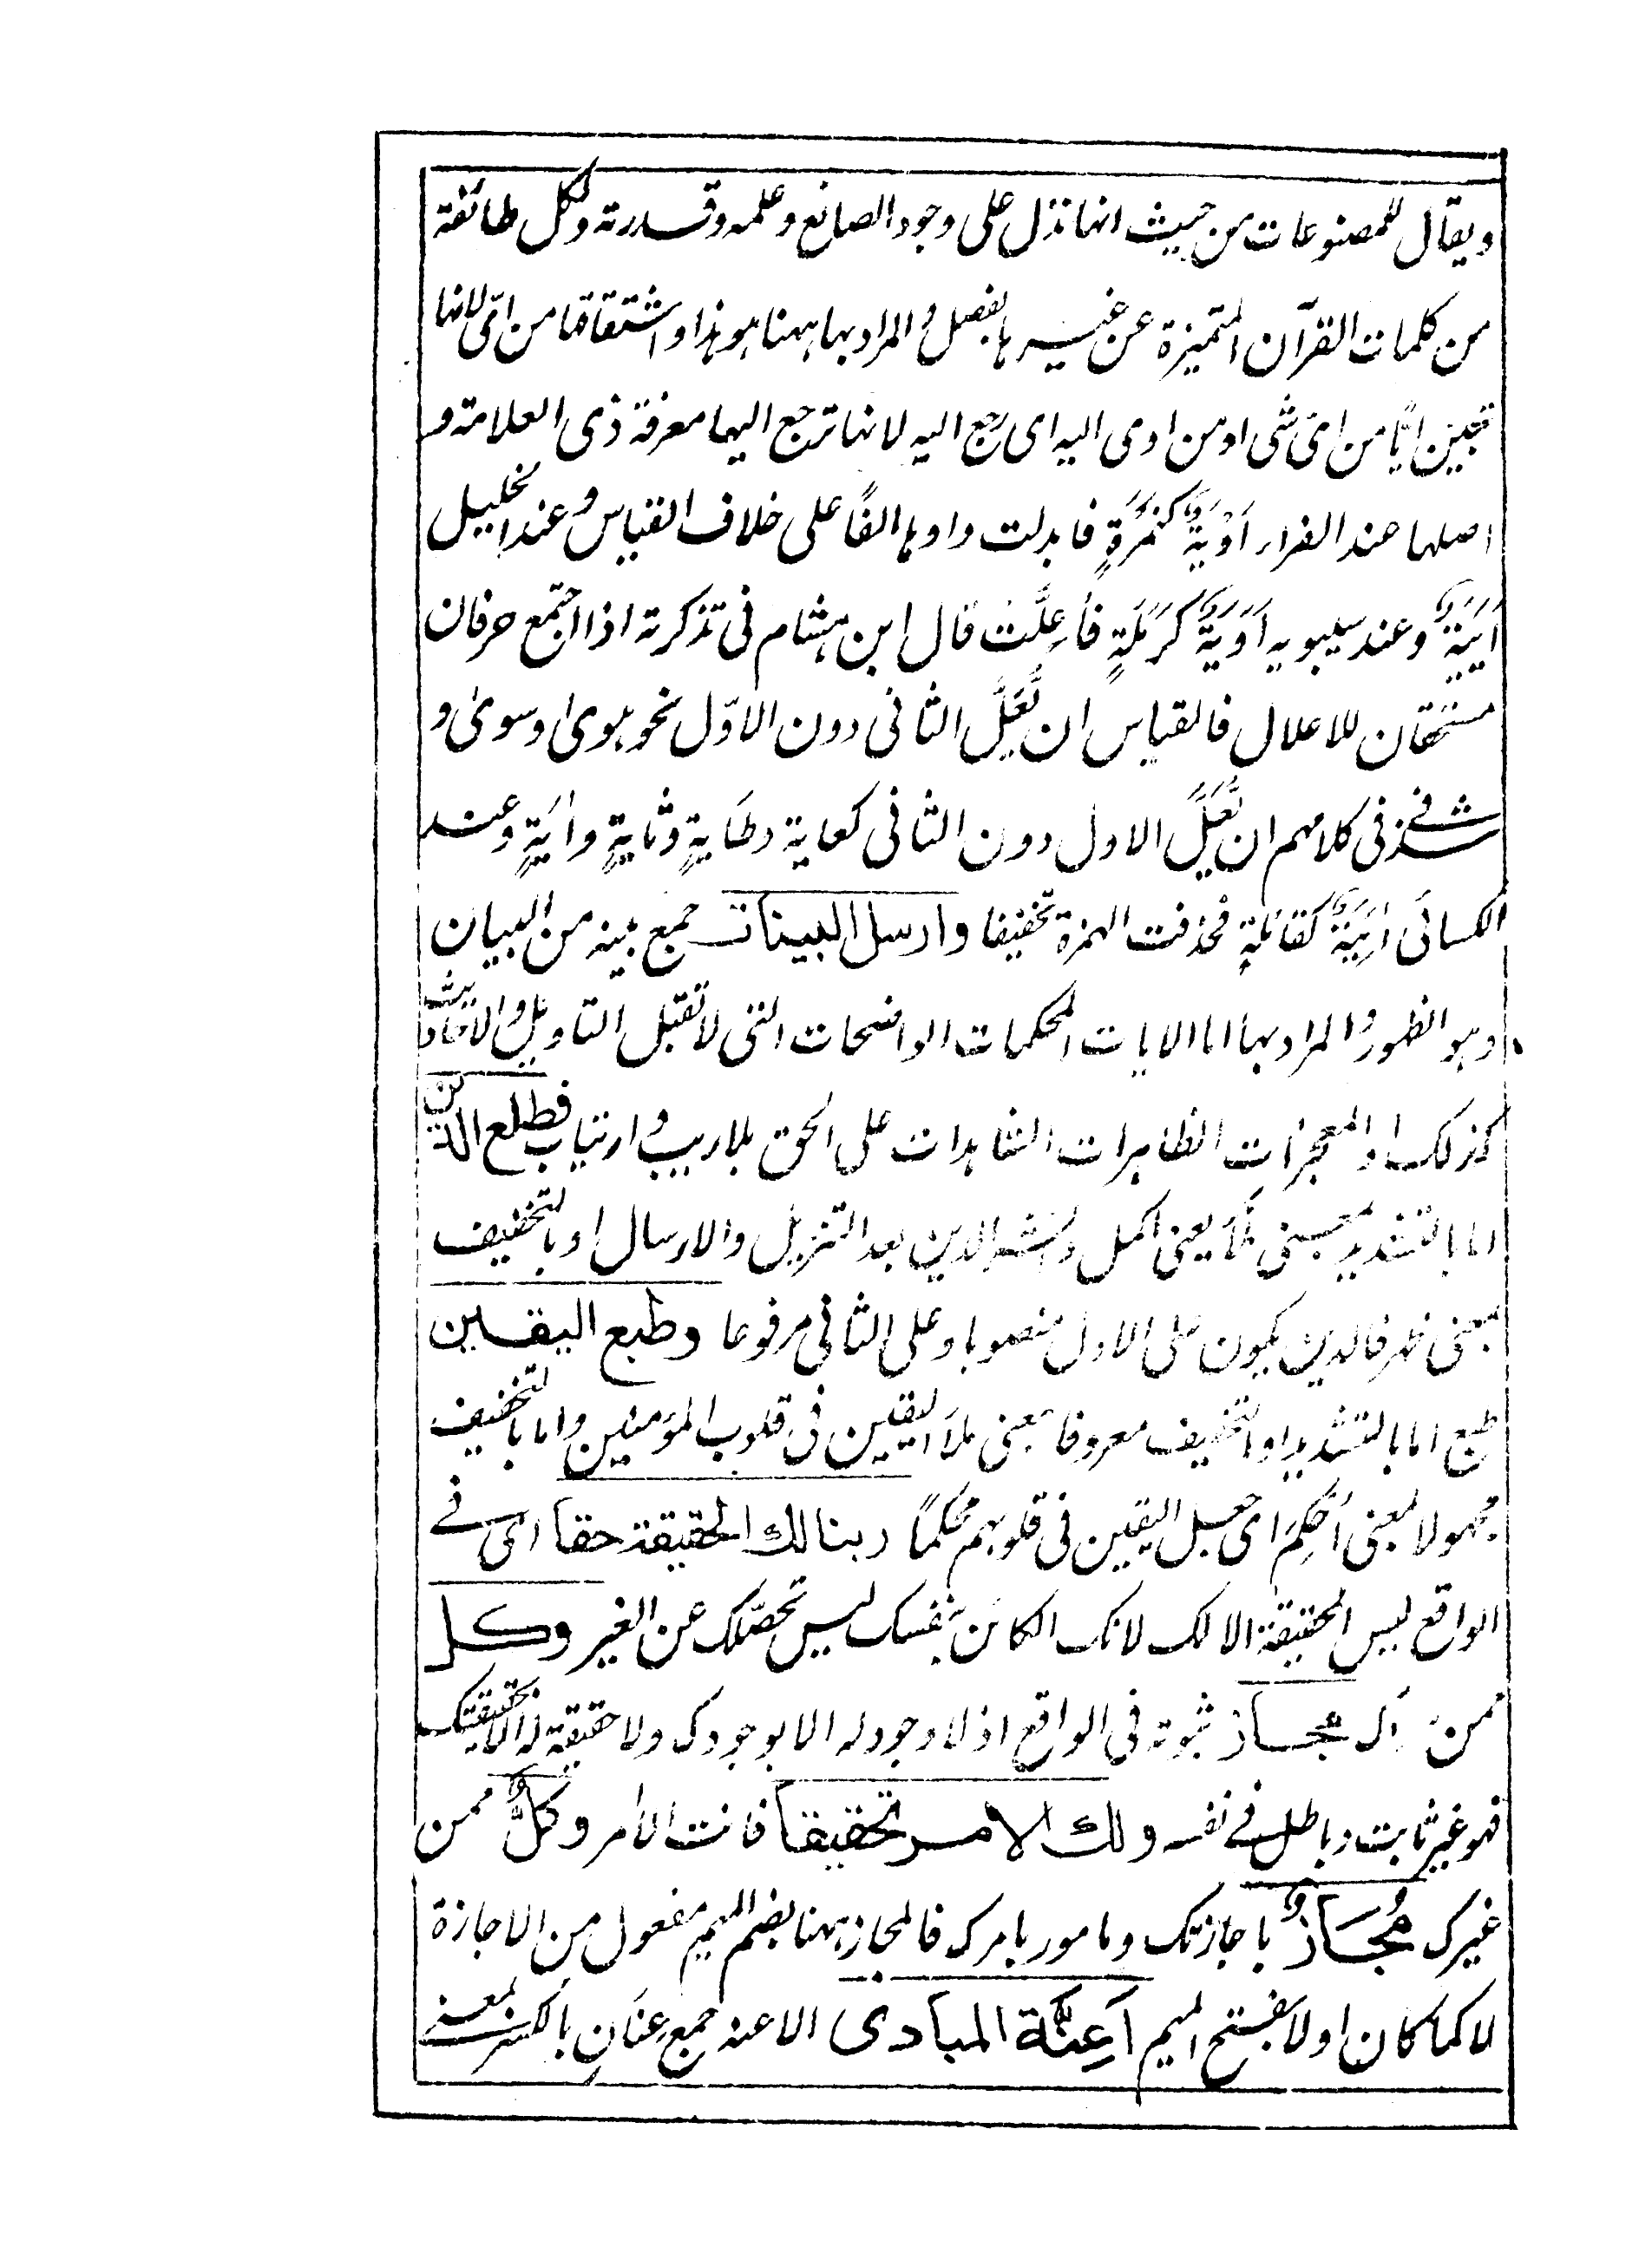 ويقال للمصنوعات من حيث انها تدل على وجود الصانع وعلمه وقدرته ولكل طائفة
من كلمات القرآن المتميزة عن غيرها بفصل والمراد بها ههنا هو هذا واشتقاقها من اىّ لانها
تبين ايًّا من اىّ شى او من اوى اليه اى رجع اليه لانها ترجع اليها معرفة ذى العلامة و
اصلها عند الفراء اَوْيَةٌ كتَمْرَةٍ فابدلت واوها الفًا على خلاف القياس وعند الخليل
اَيَيَةٌ وعند سيبويه اَوَيَةٌ كَرَمَلَةٍ فأُعِلَّت قال ابن هشام فى تذكرته اذا اجتمع حرفان
مستحقان للاعلال فالقياس ان تُعَلَّ الثانى دون الاوّل نحو هوىٰ وسوىٰ و
شذ فى كلامهم ان تُعَلَّ الاول دون الثانى كغاية وطَايةٍ وثايةٍ وايَةٍ وعند
الكسائى ائِيَةٌ كقائلةٍ فحذفت الهمزة تخفيفا وارسل البينات جمع بينه من البيان
وهو الظهور والمراد بها اما الايات المحكمات الواضحات التى لا تقبل التاويل والاحاديث
كذلك او المعجزات الظاهرات الشاهدات على الحق بلا ريب وارتياب فطلع الدين
اما بالتشديد بمعنى ملأ يعنى اكمل الدين بعد التنزيل والارسال او بالتخفيف
بمعنى ظهر فالدين يكون على الاول منصوبا وعلى الثانى مرفوعا وطبع اليقين
طبع اما بالتشديد او التخفيف معروفا بمعنى ملأ اليقين فى قلوب المؤمنين واما بالتخفيف
مجهولا بمعنى اُحْكِمَ اى جعل اليقين فى قلوبهم محكمًا ربنا لك الحقيقة حقا اى فى
الواقع ليس الحقيقة الا لك لانك الكائن بنفسك ليس تحصّلك عن الغير وكل
مجاز ثبوته فى الواقع اذ لا وجود له الا بوجودك ولا حقيقة له الا بحقيقتك
فهو غير ثابت وباطل فى نفسه ولك الامر تحقيقا فانت الآمر وكلٌّ ممن
غيرك مُجَازٌ باجازتك ومامور بامرك فالمجاز ههنا بضم الميم مفعول من الاجازة
لا كما كان اولا بفتح الميم اَعِنَّة المبادى الاعنه جمع عِنَانٍ بالكسر بمعنى